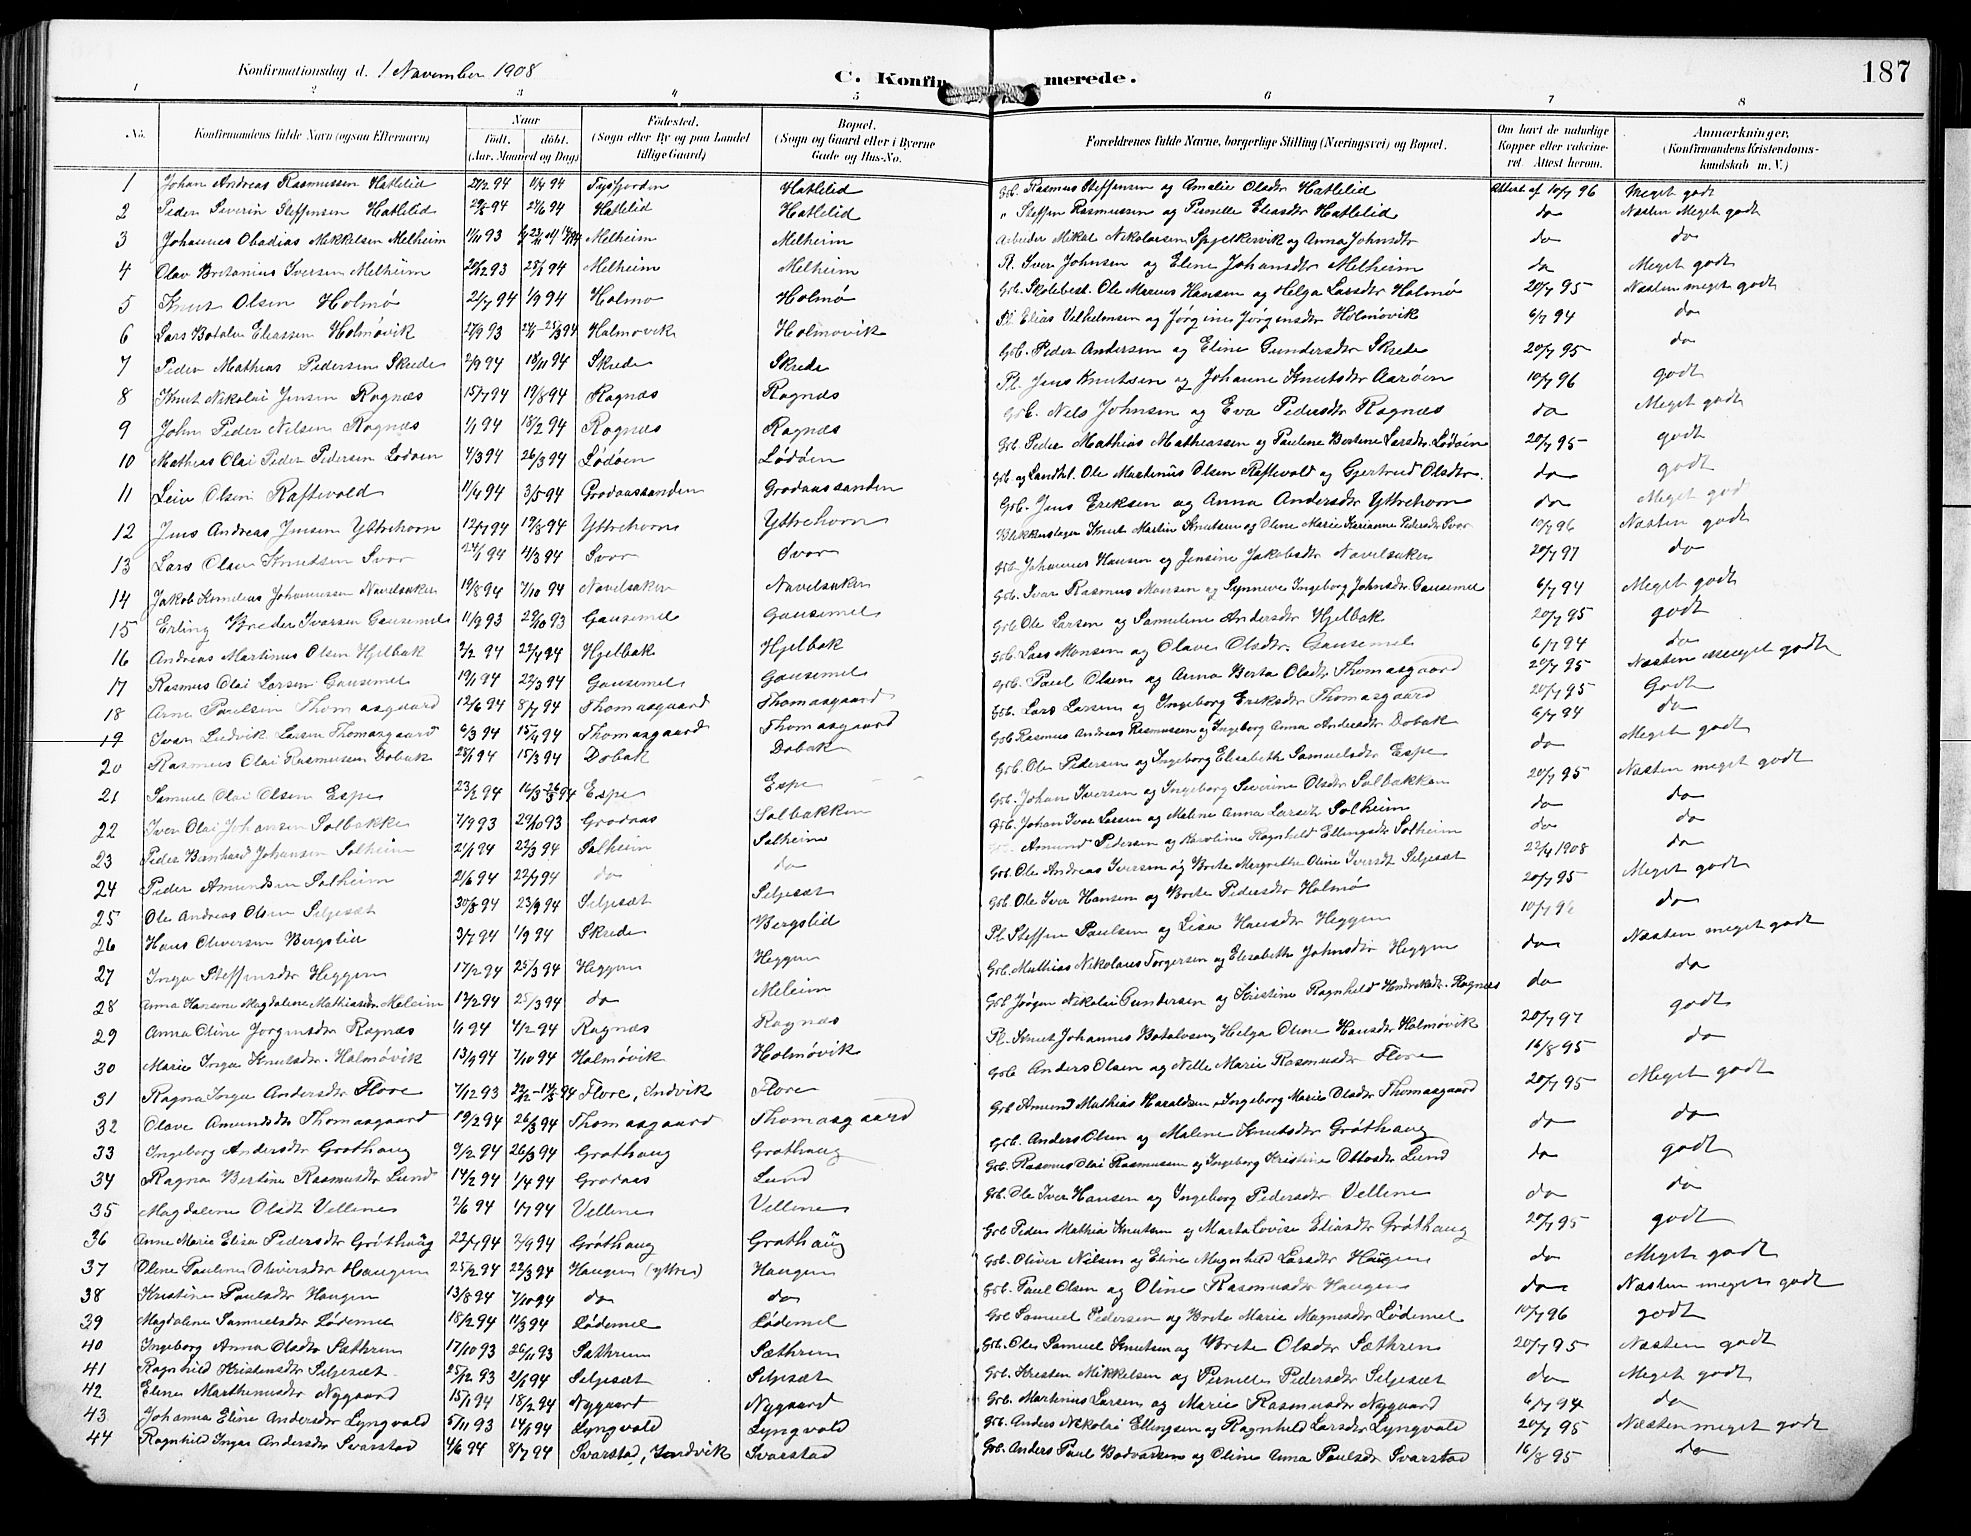 Konfirmationsdag d. 1 November 1908 C. Konfirmerede. 187
1 2 3 4 5 6 7 8
No. Konfirmandens fulde Navn (ogsaa Efternavn) Naar født. døbt. (Aar, Maaned og Dag) Fødested. (Sogn eller By og paa Landet tillige Gaard) Bopæl. (Sogn og Gaard eller i Byerne Gade og Hus-No. Forældrenes fulde Navne, borgerlige Stilling (Næringsvei) og Bopæl. Om havt de naturlige Kopper eller vakcineret. Attest herom. Anmærkninger. (Konfirmandens Kristendomskundskab m. V.)
1 Johan Andreas Rasmussen Hatlelid 94 1/4 94 Hatlelid Gbr. Rasmus Steffensen og Amalie Olsdtr Hatlelid Attest af 10/7 96 Meget godt
2 Peder Severin Steffensen Hatlelid 94 24/6 94 Hatlelid Hatlelid " Steffen Rasmussen og Pernille Eliasdtr Hatlelid do Næsten Meget godt
3 Johannes Obadias Mikkelsen Melheim 93 Melheim Melheim Arbeider Mikal Nikolaisen og Anna Johnsdtr do do
4 Olav Iversen Melheim 93 94 Melheim Melheim Pl. Iver Johnsen og Eline Johansdtr Melheim do Meget godt
5 Knut Olsen Holmø 21/7 94 1/9 94 Holmø Holmø Gbr. Skolebest. Ole Marius Hansen og Helga Larsdtr Holmø 20/7 95 Næsten meget godt
6 Lars Botolv Eliassen Holmøvik 27/9 93 94 Holmøvik Holmøvik Pl. Elias Vilhelmsen og Jørgine Jørgensdtr Holmøvik 6/7 94 do
7 Peder Mathias Pedersen Skrede 2/9 94 18/11 94 Skrede Skrede Gbr. Peder Andersen og Eline Gundersdtr Skrede 20/7 95 do
8 Knut Nikolai Jensen Rognæs 15/7 94 19/8 94 Rognæs Rognæs Pl. Jens Knutsen og Johanne Knutsdtr Aarøen 10/7 96 godt
9 John Peder Nilsen Rognæs 1/1 94 18/2 94 Rognæs Rognæs Gbr. Nels Johnsen og Eva Pedersdtr Rognæs do Meget godt
10 Mathias Olai Peder Pedersen Lødøen 4/3 94 26/3 94 Lødøen Lødøen Gbr. Peder Mathias Mathiassen og Pauline Bertine Larsdtr Lødøen 20/7 95 godt
11 Leiv Olsen Raftevold 11/4 94 3/5 94 Grodaassanden Grodaassanden Gbr. og Landhl. Ole Martinus Olsen Raftevold og Gjertrud Olsdtr. do godt
12 Jens Andreas Jensen Yttrehorn 12/7 94 19/8 94 Yttrehorn Yttrehorn Gbr. Jens Eriksen og Anna Andersdtr Yttrehorn do Meget godt
13 Lars Olav Knutsen Svor 24/1 94 4/3 94 Svor Svor Knut Martin Knutsen og Oline Marie Karianne Petersdtr Svor 10/7 96 Næsten godt
14 Jakob Kornelius Johannessen Navelsaker 19/8 94 7/10 94 Navelsaker Navelsaker Gbr. Johannes Hansen og Jensine Jakobsdtr Navelsaker 20/7 97 do
15 Erling Iversen Gausemel 11/9 93 29/10 93 Gausemel Gausemel Gbr. Ivar Rasmus Monsen og Synneve Ingeborg Johnsdtr Gausemel 6/7 94 Meget godt
16 Andreas Martinus Olsen Hjelbak 2/2 94 22/4 94 Hjelbak Hjelbak Gbr. Ole Larsen og Samuline Andersdtr Hjelbak 20/7 95 godt
17 Rasmus Olai Larsen Gausemel 19/1 94 22/3 94 Gausemel Gausemel Gbr. Lars Monsen og Olave Olsdtr. Gausemel 6/7 94 do
18 Arne Paulsen Thomasgaard 12/6 94 8/7 94 Thomasgaard Thomasgaard Gbr. Paul Olsen og Anna Berta Olsdtr Thomasgaard 20/7 95 Næsten meget godt
19 Ivar Ludvik Larsen Thomasgaard 6/3 94 15/4 94 Thomasgaard Thomasgaard Gbr. Lars Larsen og Ingeborg Eriksdtr Thomasgaard 20/7 95 Godt
20 Rasmus Olai Rasmussen Dobak 28/1 94 15/3 94 Dobak Dobak Gbr. Rasmus Andreas Rasmussen og Ingeborg Anna Andersdtr Dobak 6/7 94 do
21 Samuel Olai Olsen Espe 23/2 94 94 Espe Espe Gbr. Ole Pedersen og Ingeborg Elisabeth Samuelsdtr Espe do Meget godt
22 Iver Olai Johansen Solbakke 7/9 93 29/10 93 Grodaas Solbakken Gbr. Johan Iversen og Ingeborg Severine Olsdtr Solbakken 20/7 95 Næsten meget godt
23 Peder Bernhard Johansen Solheim 21/1 94 22/3 94 Solheim Solheim Gbr. Johan Ivar Larsen og Malene Anna Larsdt Solheim do do
24 Peder Amundsen Solheim 21/6 94 22/7 94 do do Amund Pedersen og Karoline Ragnhild Ellingsdtr Solheim do do
25 Ole Andreas Olsen Seljesæt 30/8 94 23/9 94 Seljesæt Seljesæt Gbr. Ole Andreas Iversen og Brite Margrethe Oline Iversdt Seljesæt 22/4 1908 do
26 Hans Oliversen Bergslid 3/7 94 1/9 94 Skrede Bergslid Gbr. Ole Iver Hansen og Brite Pedersdtr Holmø 20/7 95 Meget godt
27 Inga Steffensdtr Heggen 17/2 94 25/3 94 Heggen Heggen Pl. Steffen Paulsen og Lisa Hansdtr Heggen 10/7 96 do
28 Anna Hansine Magdalene Mathiasdtr Meleim 12/2 94 25/3 94 do Meleim Gbr. Mathias Nikolaus Torgersen og Elisabeth Johnsdtr Heggen do Næsten meget godt
29 Anna Oline Jørgensdtr Rognæs 1/1 94 4/2 94 Rognæs Rognæs Gbr. Jørgen Nikolai Gundersen og Kristine Ragnhild Hendriksdtr. Rognæs do do
30 Marie Inga Knutsdtr. Holmøvik 13/9 94 7/10 94 Holmøvik Holmøvik Pl. Knut Johannes Botolvsen, Helga Oline Hansdtr Holmøvik 20/7 97 godt
31 Ragna Inga Andersdtr Flore 7/12 93 94 Flore, Indvik Flore Gbr. Anders Olsen og Nille Marie Rasmusdtr Flore 16/8 95 do
32 Olave Amundsdtr Thomasgaard 19/2 94 26/3 94 Thomasgaard Thomasgaard Gbr. Amund Mathias Haraldsen, Ingeborg Marie Olsdtr Thomasgaard 20/7 95 Meget godt
33 Ingeborg Andersdtr Grothaug 9/2 94 26/3 94 Grothaug Grothaug Gbr. Anders Olsen og Malene Knutsdtr Grøthaug do do
34 Ragna Bertine Rasmusdtr Lund 14/2 94 1/4 94 Grodaas Lund Gbr. Rasmus Olai Rasmussen og Ingeborg Kristine Ottosdtr Lund do godt
35 Magdalene Olsdt Vellene 2/6 94 1/7 94 Vellene Vellene Gbr. Ole Iver Hansen og Ingeborg Pedersdtr Vellene do do
36 Anne Marie Elisa Pedersdtr Grøthaug 22/7 94 2/9 94 Grøthaug Grøthaug Gbr. Peder Mathia Knutsen og Marta Lovise Eliasdtr Grøthaug 20/7 95 godt
37 Oline Pauline Oliversdtr Haugen 25/2 94 22/3 94 Haugen (yttre) Haugen Gbr. Oliver Nilsen og Eline Magnhild Larsdtr Haugen do Meget godt
38 Kristine Paulsdtr Haugen 13/8 94 7/10 94 do do Gbr. Paul Olsen og Oline Rasmusdtr Haugen do Næsten meget godt
39 Magdalene Samuelsdtr Lødemel 18/2 94 11/3 94 Lødemel Lødemel Gbr. Samuel Pedersen og Brite Marie Magnusdtr Lødemel 10/7 96 godt
40 Ingeborg Anna Olsdtr Sæthren 17/10 93 26/11 93 Sæthren Sæthren Gbr. Ole Samuel Knutsen og Brite Olsdtr Sæthren 20/7 95 Næsten godt
41 Ragnhild Kristensdtr Seljesæt 25/12 93 2/1 94 Seljesæt Seljesæt Gbr. Kresten Mikkelsen og Pernille Pedersdtr Seljesæt do Meget godt
42 Eline Marthinusdtr Nygaard 15/1 94 18/2 94 Nygaard Nygaard Gbr. Martinius Larsen og Marie Rasmusdtr Nygaard 6/7 94 do
43 Johanna Eline Andersdtr Lyngvold 5/11 93 14/1 94 Lyngvold Lyngvold Gbr. Anders Nikolai Ellingsen og Ragnhild Larsdtr Lyngvold 20/7 95 Næsten meget godt
44 Ragnhild Inga Andersdtr Svarstad 4/6 94 8/7 94 Svarstad, Indvik Svarstad Gbr. Anders Paul Bodvarsen og Oline Anna Paulsdtr Svarstad 16/8 95 do